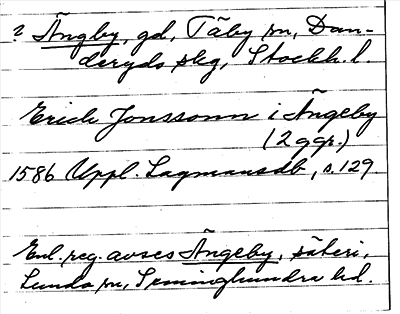 ? Ängby, gd, Täby sn, Dan-
deryds skg, Stockh. l.
Erich Jonssonn i Ängeby
(2 ggr.)
1586 Uppl. Lagmansdb, s. 129.
Enl. reg. avses Ängeby, säteri,
Lunda sn, Seminghundra hd.